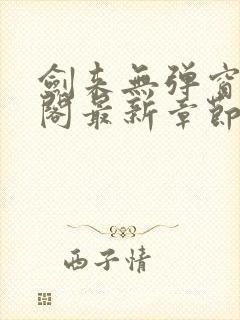 劍来無弹窗
閣最新章節
西子情